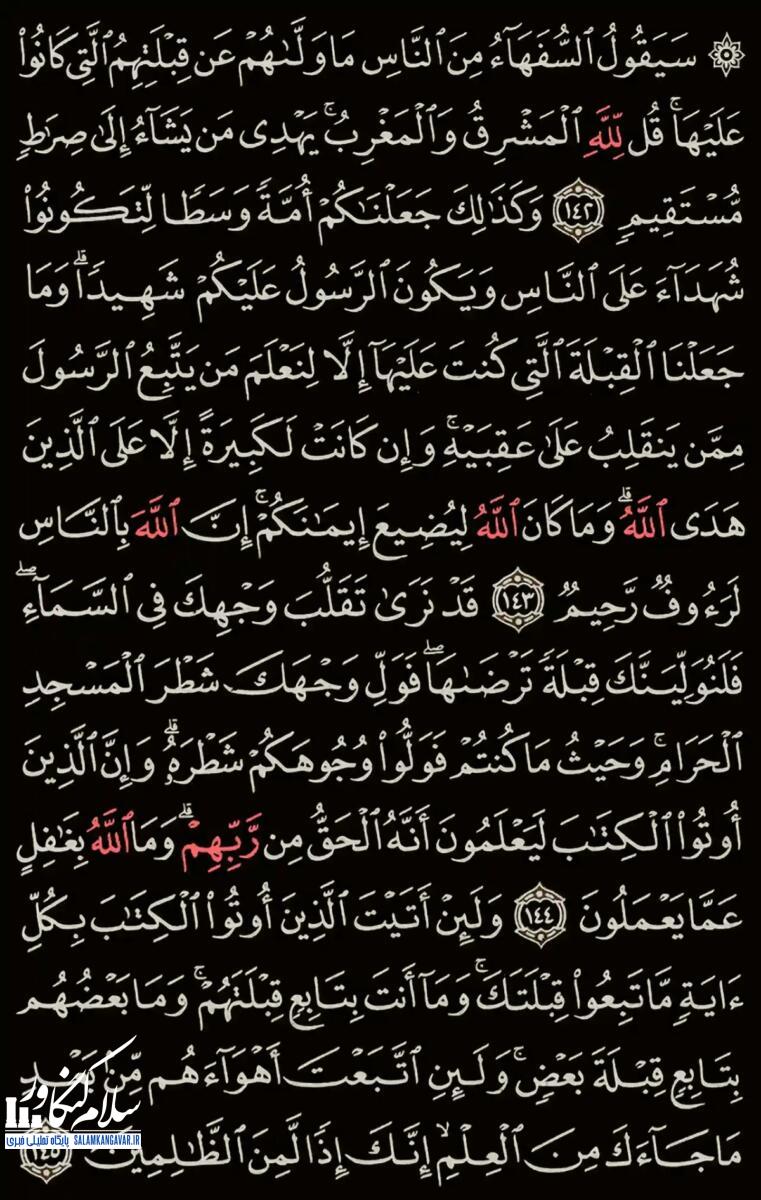 ۞ سَيَقُولُ ٱلسُّفَهَآءُ مِنَ ٱلنَّاسِ مَا وَلَّىٰهُمْ عَن قِبْلَتِهِمُ ٱلَّتِى كَانُوا۟
عَلَيْهَا ۚ قُل لِّلَّهِ ٱلْمَشْرِقُ وَٱلْمَغْرِبُ ۚ يَهْدِى مَن يَشَآءُ إِلَىٰ صِرَٰطٍ
مُّسْتَقِيمٍ ١٤٢ وَكَذَٰلِكَ جَعَلْنَٰكُمْ أُمَّةً وَسَطًا لِّتَكُونُوا۟
شُهَدَآءَ عَلَى ٱلنَّاسِ وَيَكُونَ ٱلرَّسُولُ عَلَيْكُمْ شَهِيدًا ۗ وَمَا
جَعَلْنَا ٱلْقِبْلَةَ ٱلَّتِى كُنتَ عَلَيْهَآ إِلَّا لِنَعْلَمَ مَن يَتَّبِعُ ٱلرَّسُولَ
مِمَّن يَنقَلِبُ عَلَىٰ عَقِبَيْهِ ۚ وَإِن كَانَتْ لَكَبِيرَةً إِلَّا عَلَى ٱلَّذِينَ
هَدَى ٱللَّهُ ۗ وَمَا كَانَ ٱللَّهُ لِيُضِيعَ إِيمَٰنَكُمْ ۚ إِنَّ ٱللَّهَ بِٱلنَّاسِ
لَرَءُوفٌ رَّحِيمٌ ١٤٣ قَدْ نَرَىٰ تَقَلُّبَ وَجْهِكَ فِى ٱلسَّمَآءِ ۖ
فَلَنُوَلِّيَنَّكَ قِبْلَةً تَرْضَىٰهَا ۚ فَوَلِّ وَجْهَكَ شَطْرَ ٱلْمَسْجِدِ
ٱلْحَرَامِ ۚ وَحَيْثُ مَا كُنتُمْ فَوَلُّوا۟ وُجُوهَكُمْ شَطْرَهُۥ ۗ وَإِنَّ ٱلَّذِينَ
أُوتُوا۟ ٱلْكِتَٰبَ لَيَعْلَمُونَ أَنَّهُ ٱلْحَقُّ مِن رَّبِّهِمْ ۗ وَمَا ٱللَّهُ بِغَٰفِلٍ
عَمَّا يَعْمَلُونَ ١٤٤ وَلَئِنْ أَتَيْتَ ٱلَّذِينَ أُوتُوا۟ ٱلْكِتَٰبَ بِكُلِّ
ءَايَةٍ مَّا تَبِعُوا۟ قِبْلَتَكَ ۚ وَمَآ أَنتَ بِتَابِعٍ قِبْلَتَهُمْ ۚ وَمَا بَعْضُهُم
بِتَابِعٍ قِبْلَةَ بَعْضٍ ۚ وَلَئِنِ ٱتَّبَعْتَ أَهْوَآءَهُم مِّنۢ بَعْدِ
مَا جَآءَكَ مِنَ ٱلْعِلْمِ ۙ إِنَّكَ إِذًا لَّمِنَ ٱلظَّٰلِمِينَ ١٤٥
سلام کنگاور
پایگاه تحلیلی خبری SALAMKANGAVAR.IR